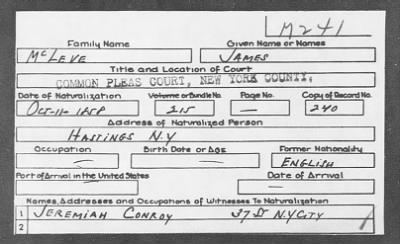 M241
Family Name Given Name or Names
McLeve James
Title and Location of Court
COMMON PLEAS COURT, NEW YORK COUNTY.
Date of Naturalization Volume or Bundle No. Page No. Copy of Record No.
Oct-11- 215 — 240
Address of Naturalized Person
Hastings N.Y
Occupation Birth Date or Age Former Nationality
— — English
Port of Arrival in the United States Date of Arrival
— —
Names, Addresses and Occupations of Witnesses To Naturalization
1 Jeremiah Conroy 37 St N.Y City
2